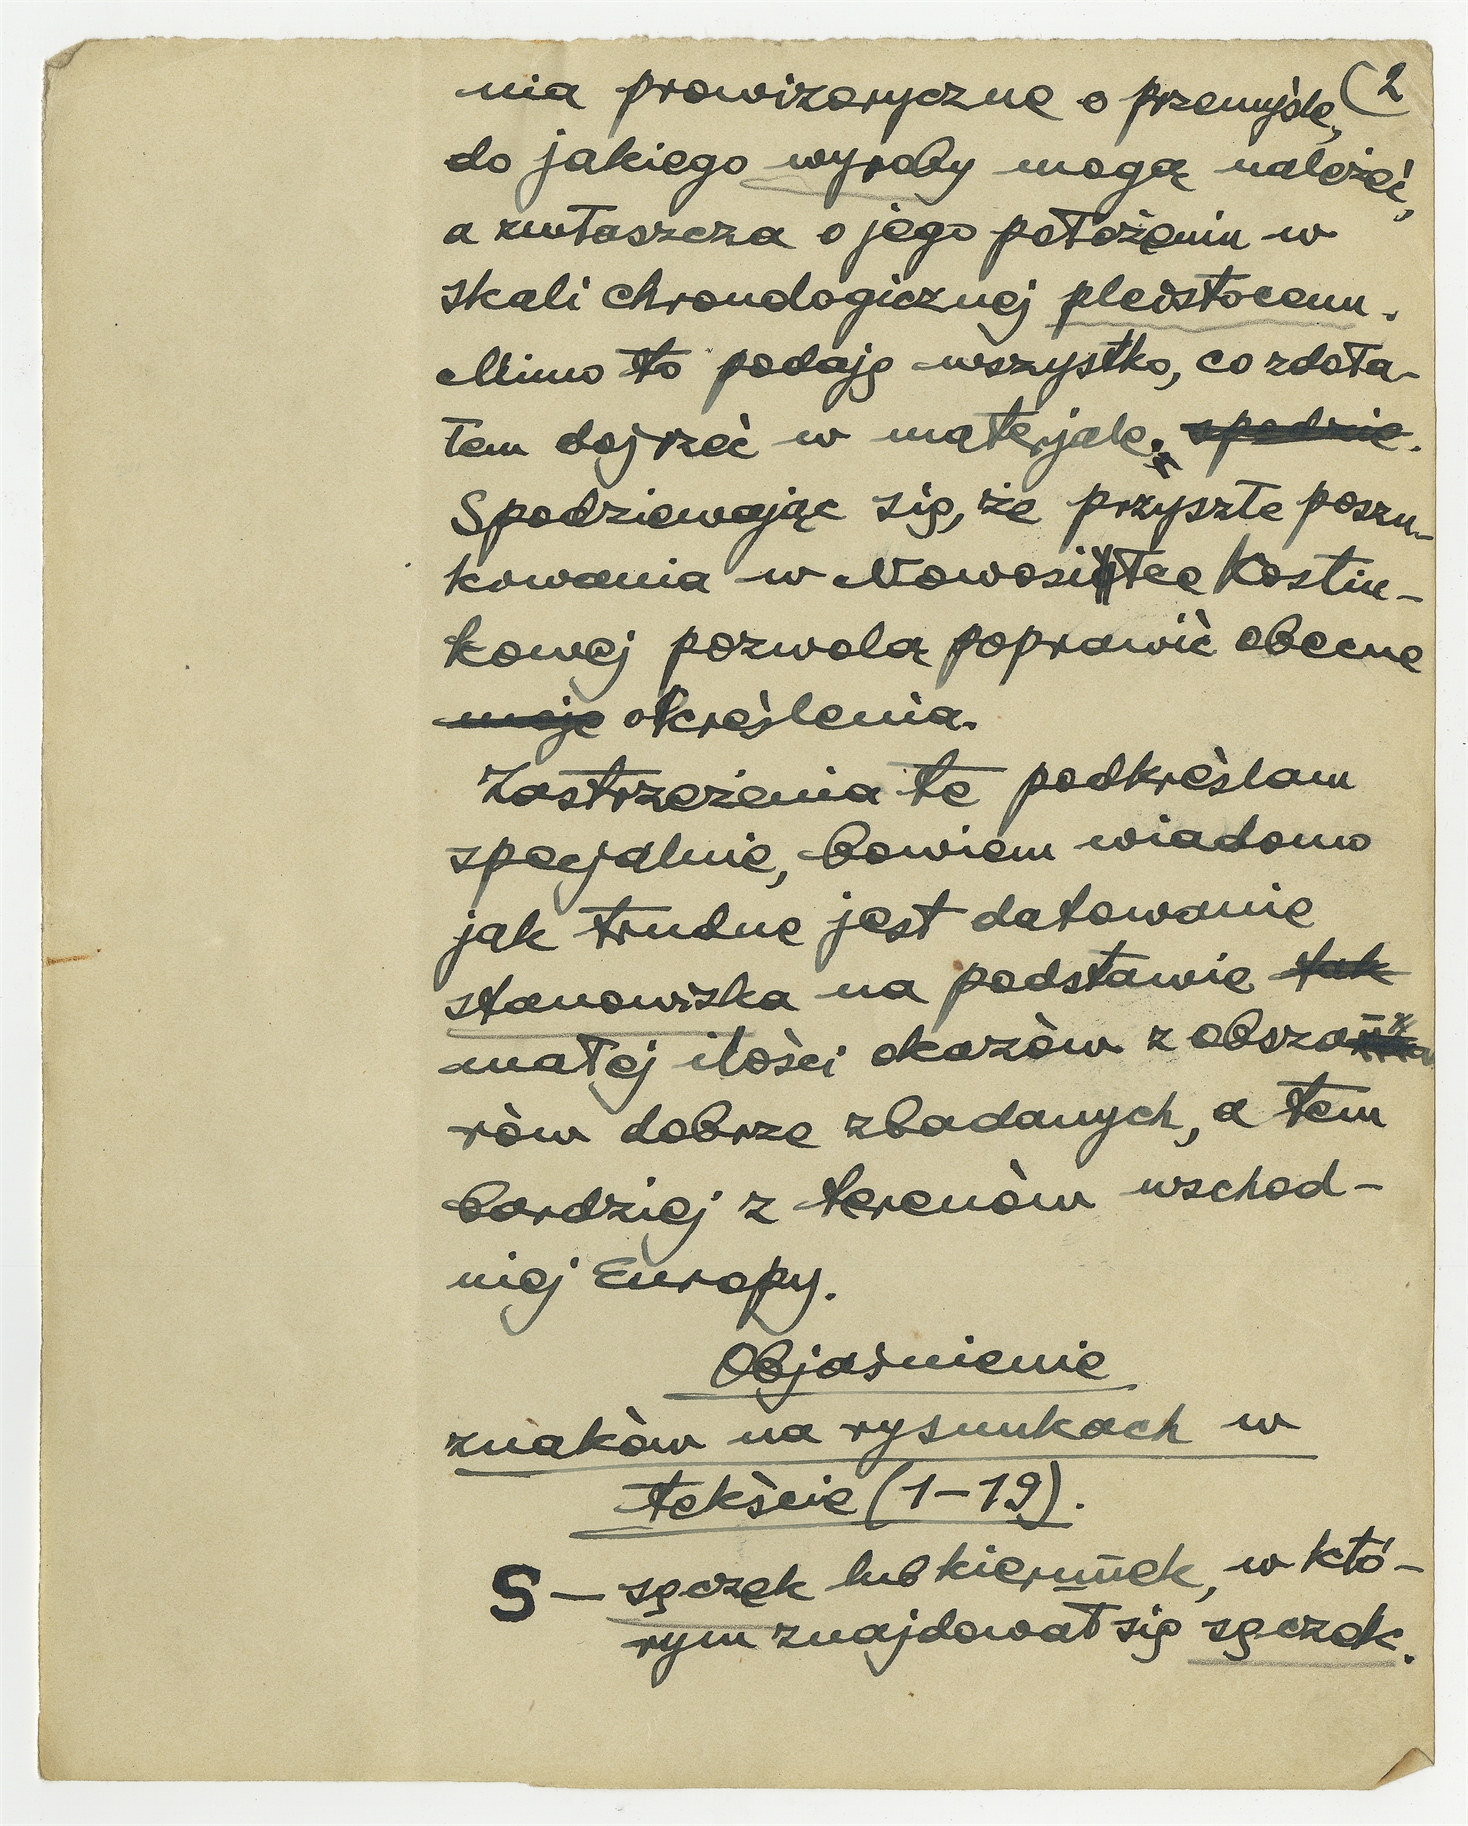 (2
nia prowizoryczne o przemyśle,
do jakiego wyroby mogą należeć,
a zwłaszcza o jego położeniu w
skali chronologicznej pleistocenu.
Mimo to podaję wszystko, co zdoła-
łem dojrzeć w materjale. spodzie.
Spodziewając się, że przyszłe poszu-
kowania w Nowosiółce Kostiu-
kowej pozwolą poprawić obecne
moje określenia.
Zastrzeżenia te podkreślam
specjalnie, bowiem wiadomo
jak trudne jest datowanie
stanowiska na podstawie tak
małej ilości okazów z obsza
rów dobrze zbadanych, a tem
bardziej z terenów wschod-
niej Europy.
Objaśnienie
znaków na rysunkach w
tekście (1-19).
S - sęczek lub kierunek, w któ-
rym znajdował się sęczek.